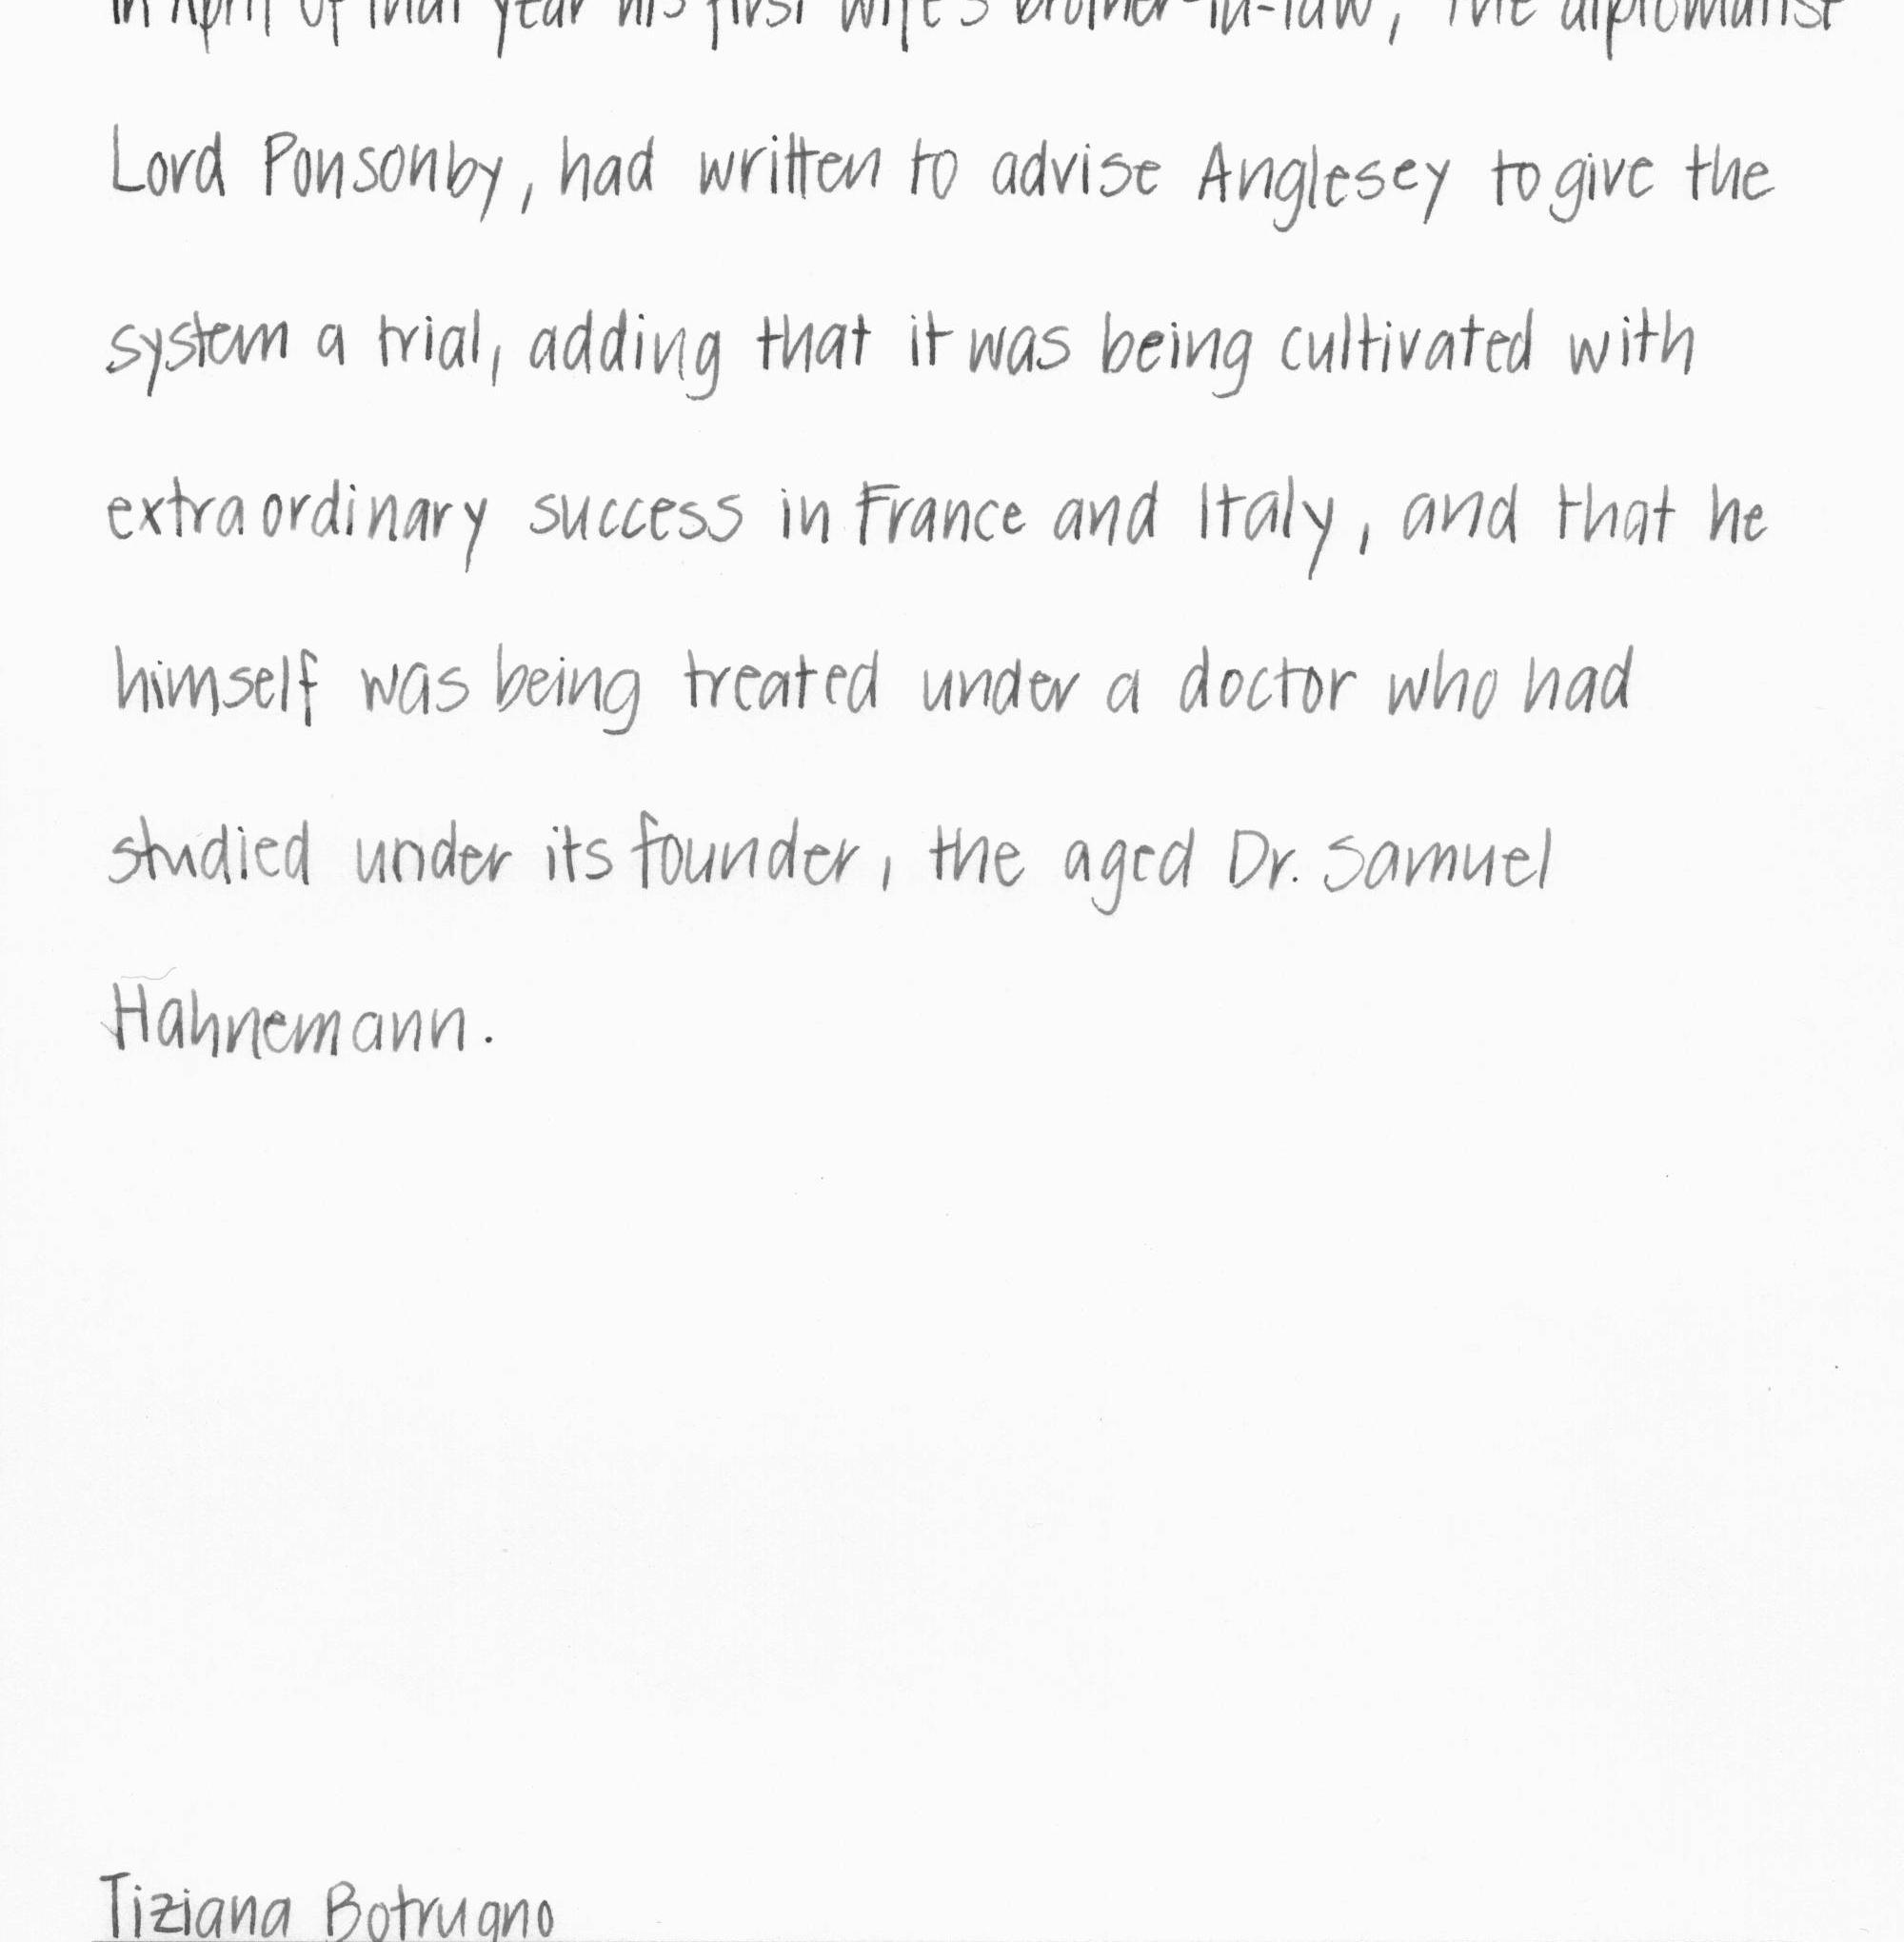 in April of that year his first wife's brother-in-law, the diplomatist
Lord Ponsonby, had written to advise Anglesey to give the
system a trial, adding that it was being cultivated with
extraordinary success in France and Italy, and that he
himself was being treated under a doctor who had
studied under its founder, the aged Dr. Samuel
Hahnemann.
Tiziana Botrugno